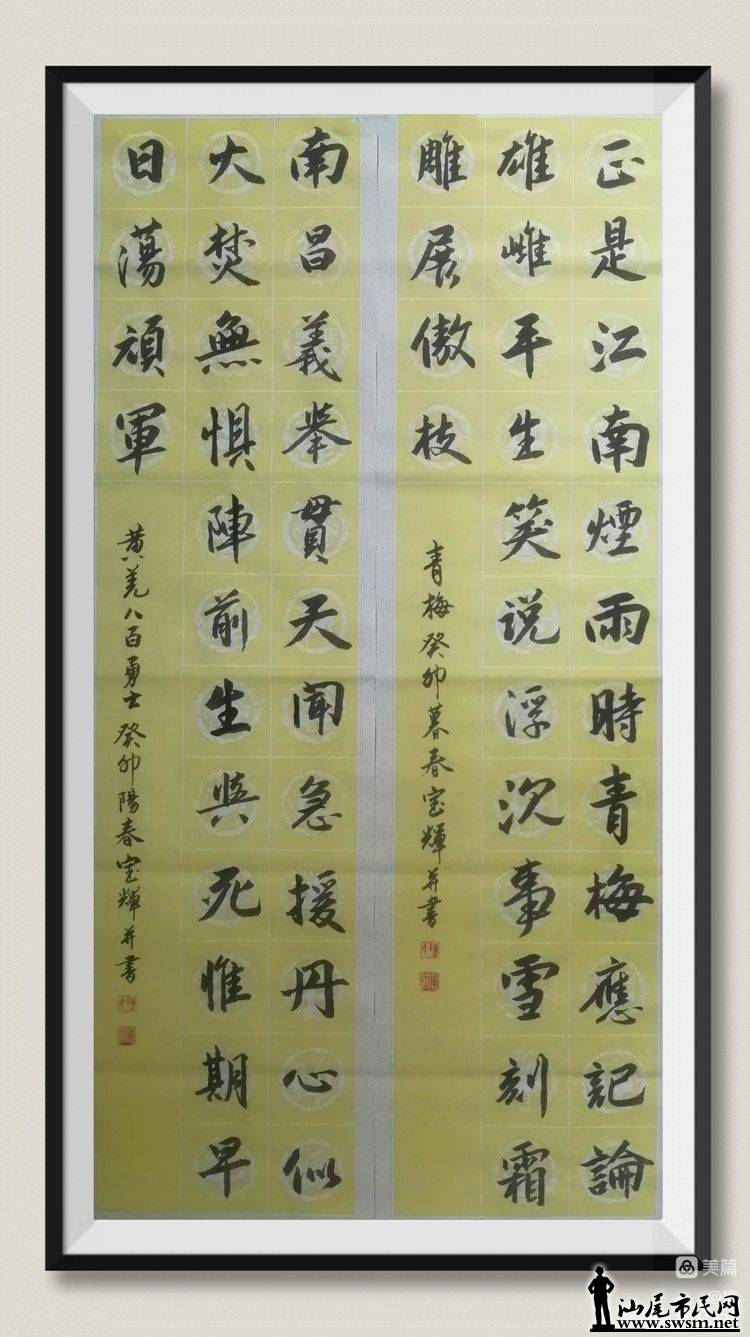 正是江南煙雨時青梅應記論
雄雌平生笑说浮沉事雪刻霜
雕展傲枝
青梅癸卯暮春宝輝并書
南昌義举貫天聞急援丹心似
火焚無惧陣前生與死惟期早
日蕩頑軍
黄羌八百勇士癸卯陽春宝輝并書
美篇
汕尾市民网
www.swsm.net